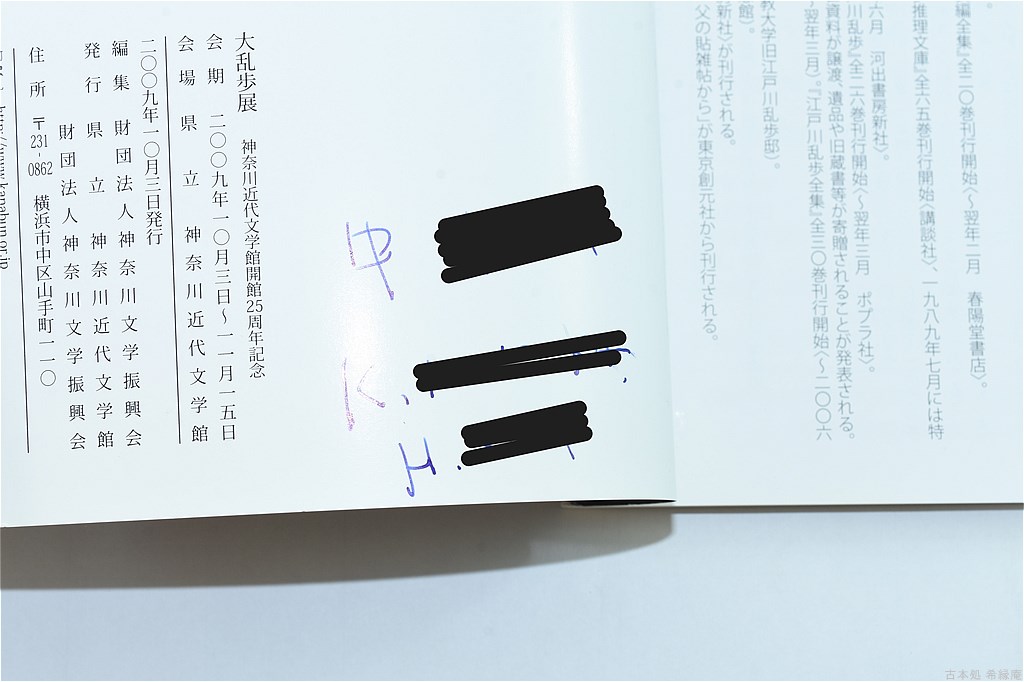 編全集』全二〇巻刊行開始〈～翌年二月　春陽堂書店〉。
推理文庫』全六五巻刊行開始〈講談社〉、一九八九年七月には特
六月　河出書房新社〉。
川乱歩』全二六巻刊行開始〈～翌年三月　ポプラ社〉。
資料が譲渡、遺品や旧蔵書等が寄贈されることが発表される。
翌年三月〉。『江戸川乱歩全集』全三〇巻刊行開始〈～二〇〇六
教大学旧江戸川乱歩邸）。
館）。
新社〉が刊行される。
父の貼雑帖から」が東京創元社から刊行される。
中
K.
H.
大乱歩展　神奈川近代文学館開館25周年記念
会期　二〇〇九年一〇月三日～一一月一五日
会場　県立神奈川近代文学館
二〇〇九年一〇月三日発行
編集　財団法人神奈川文学振興会
発行　県立神奈川近代文学館
財団法人神奈川文学振興会
住所　〒231-0862　横浜市中区山手町一一〇
古本処 希縁庵